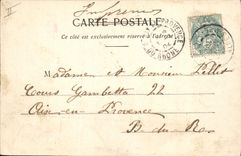 Imprimés
CARTE POSTALE
Ce côté est exclusivement réservé à l'adresse
Madame et Monsieur Pellet
Cours Gambetta 22
Aix-en-Provence
B. du R.